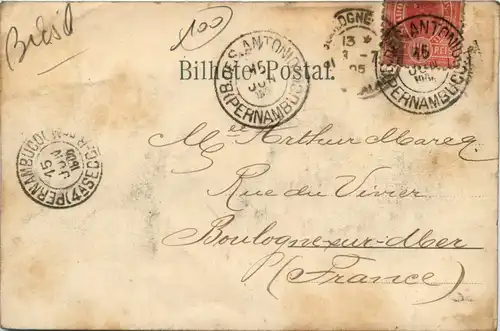 Brésil
100
BOULOGNE
13 *
-7
05
REIS
S. ANTONIO
15
JUN
(PERNAMBUCO)
S. ANTONIO
15
JUN
(PERNAMBUCO)
Bilhete Postal.
PERNAMBUCO
4ª SECC
15
JUN
Mlle Arthur Mareq
Rue du Vivier
Boulogne-sur-Mer
(France)